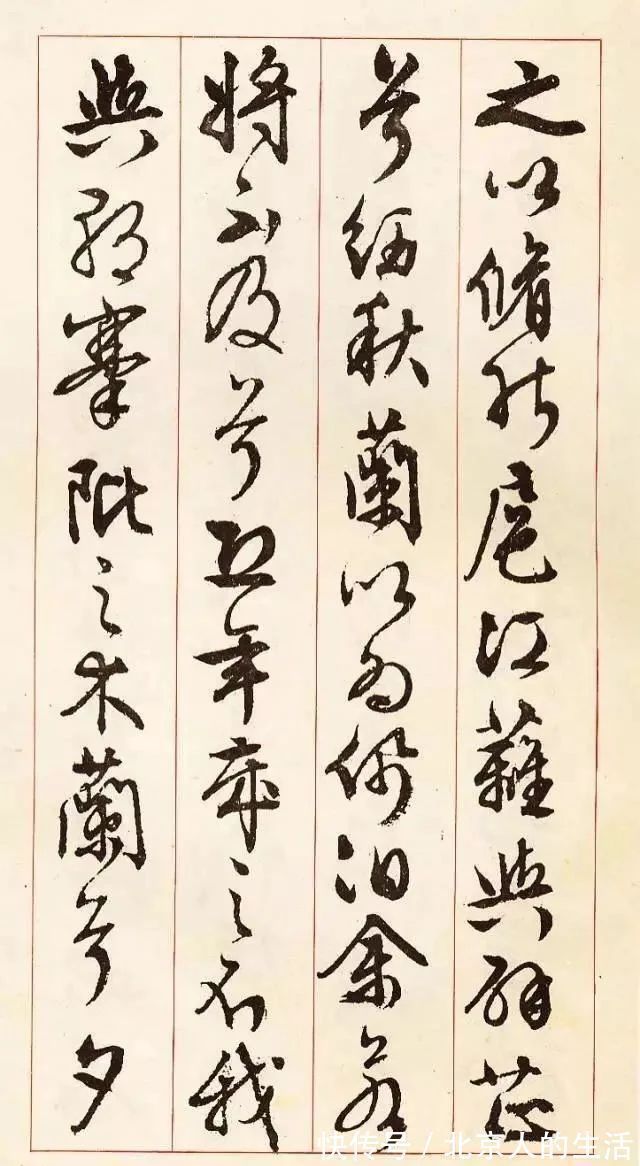 之以脩能扈江蘺與辟芷
兮紉秋蘭以為佩汩余若
將不及兮恐年歲之不我
與朝搴阰之木蘭兮夕
快传号/北京人的生活